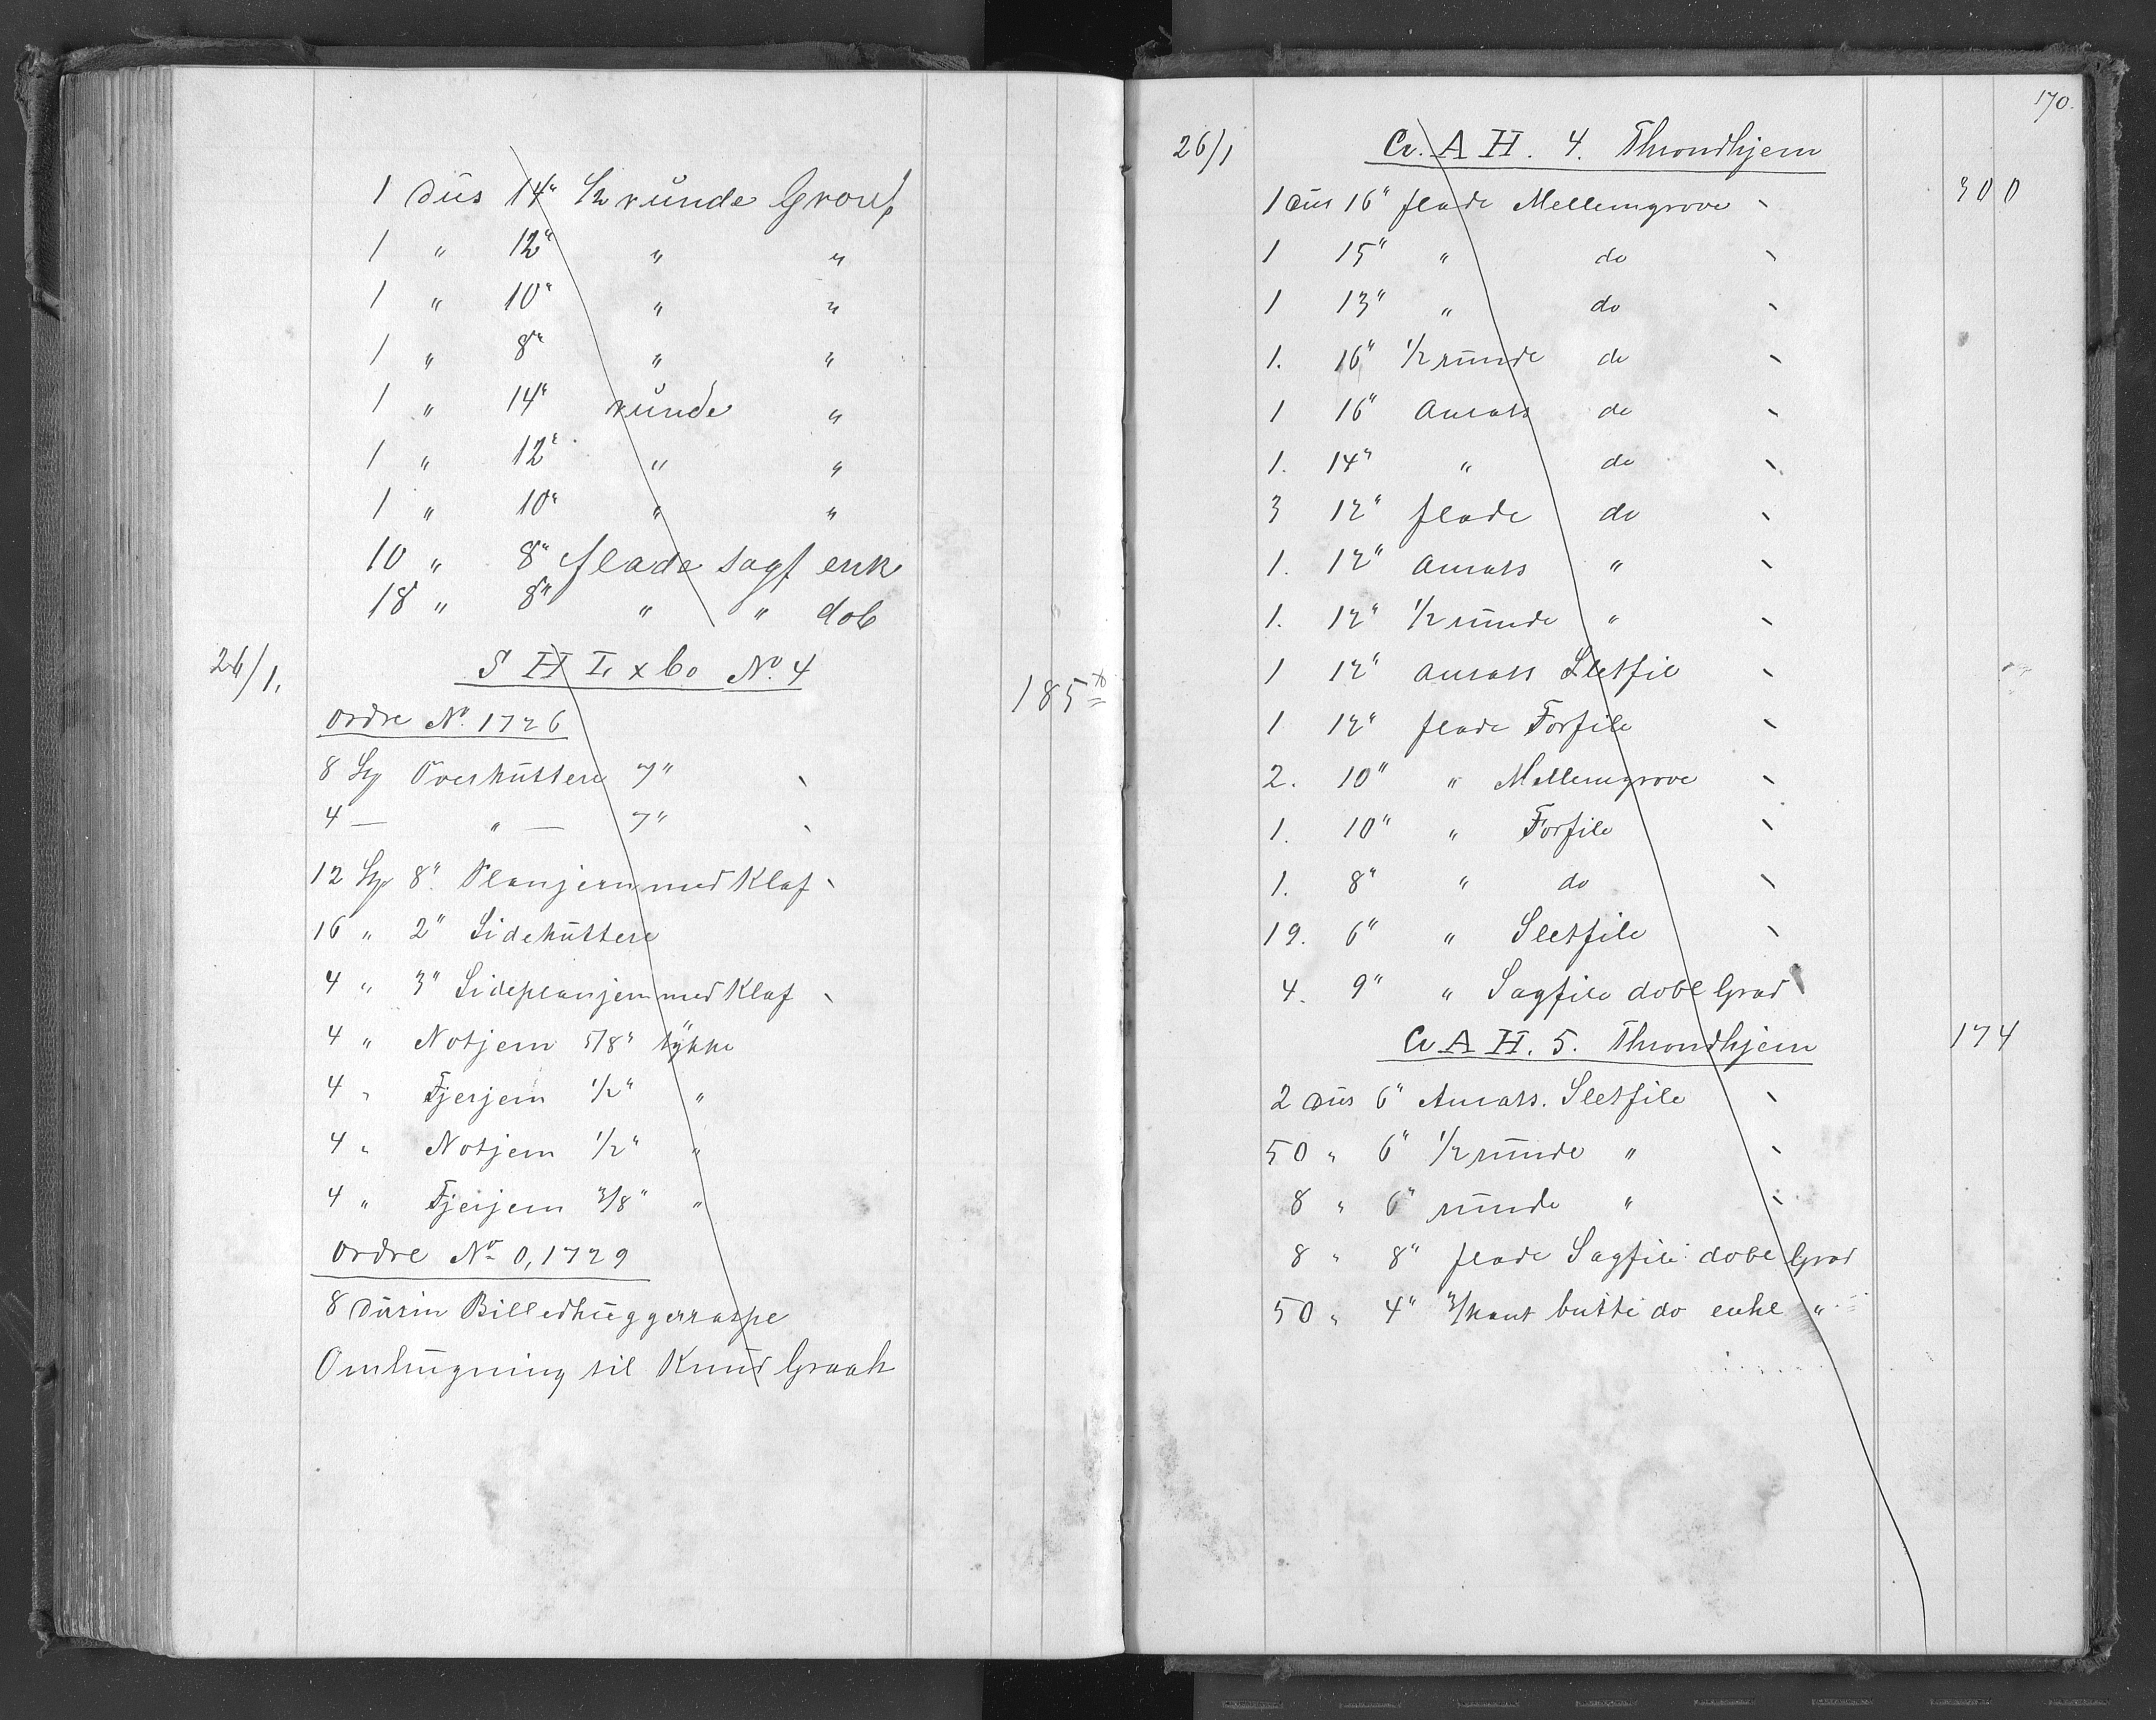 1 Dus 14" ½ runde Grovf
1 " 12" " "
1 " 10" " "
1 " 8" " "
1 " 14" runde "
1 " 12" " "
1 " 10" " "
10 " 8" flade Sagf enk
18 " 8" " " dob
26/1. S H L x Co No. 4
185
Ordre No. 1726
8 St Overkuttere 7"
4 — " — 7"
12 St 8" Planjern med Klaf
16 " 2" Sidekuttere
4 " 3" Sideplanjern med Klaf
4 " Notjern 5/8" tykke
4 " Fjerjern 1/2" "
4 " Notjern 1/2" "
4 " Fjerjern 3/8" "
Ordre No 0,1729
8 Dusin Billedhuggerraspe
Omhugning til Knud Graah
170.
26/1 A H. 4. Throndhjem
1 Dus 16" flade Mellemgrove 300
1 15" " do
1 13" " do
1. 16" ½ runde do
1 16" Ansats do
1. 14" " do
3 12" flade do
1. 12" Ansats "
1. 12" ½ runde "
1 12" Ansats Sletfil
1 12" flade Forfile
2. 10" " Mellemgrove
1. 10" " Forfile
1. 8" " do
19. 6" " Sletfile
4. 9" " Sagfile dobl Grad
A H. 5. Throndhjem 174
2 Dus 6" Ansats. Sletfile
50 " 6" ½ runde "
8 " 6" runde "
8 " 8" flade Sagfile dobl Grad
50 " 4" 3/kant butte do enkl "